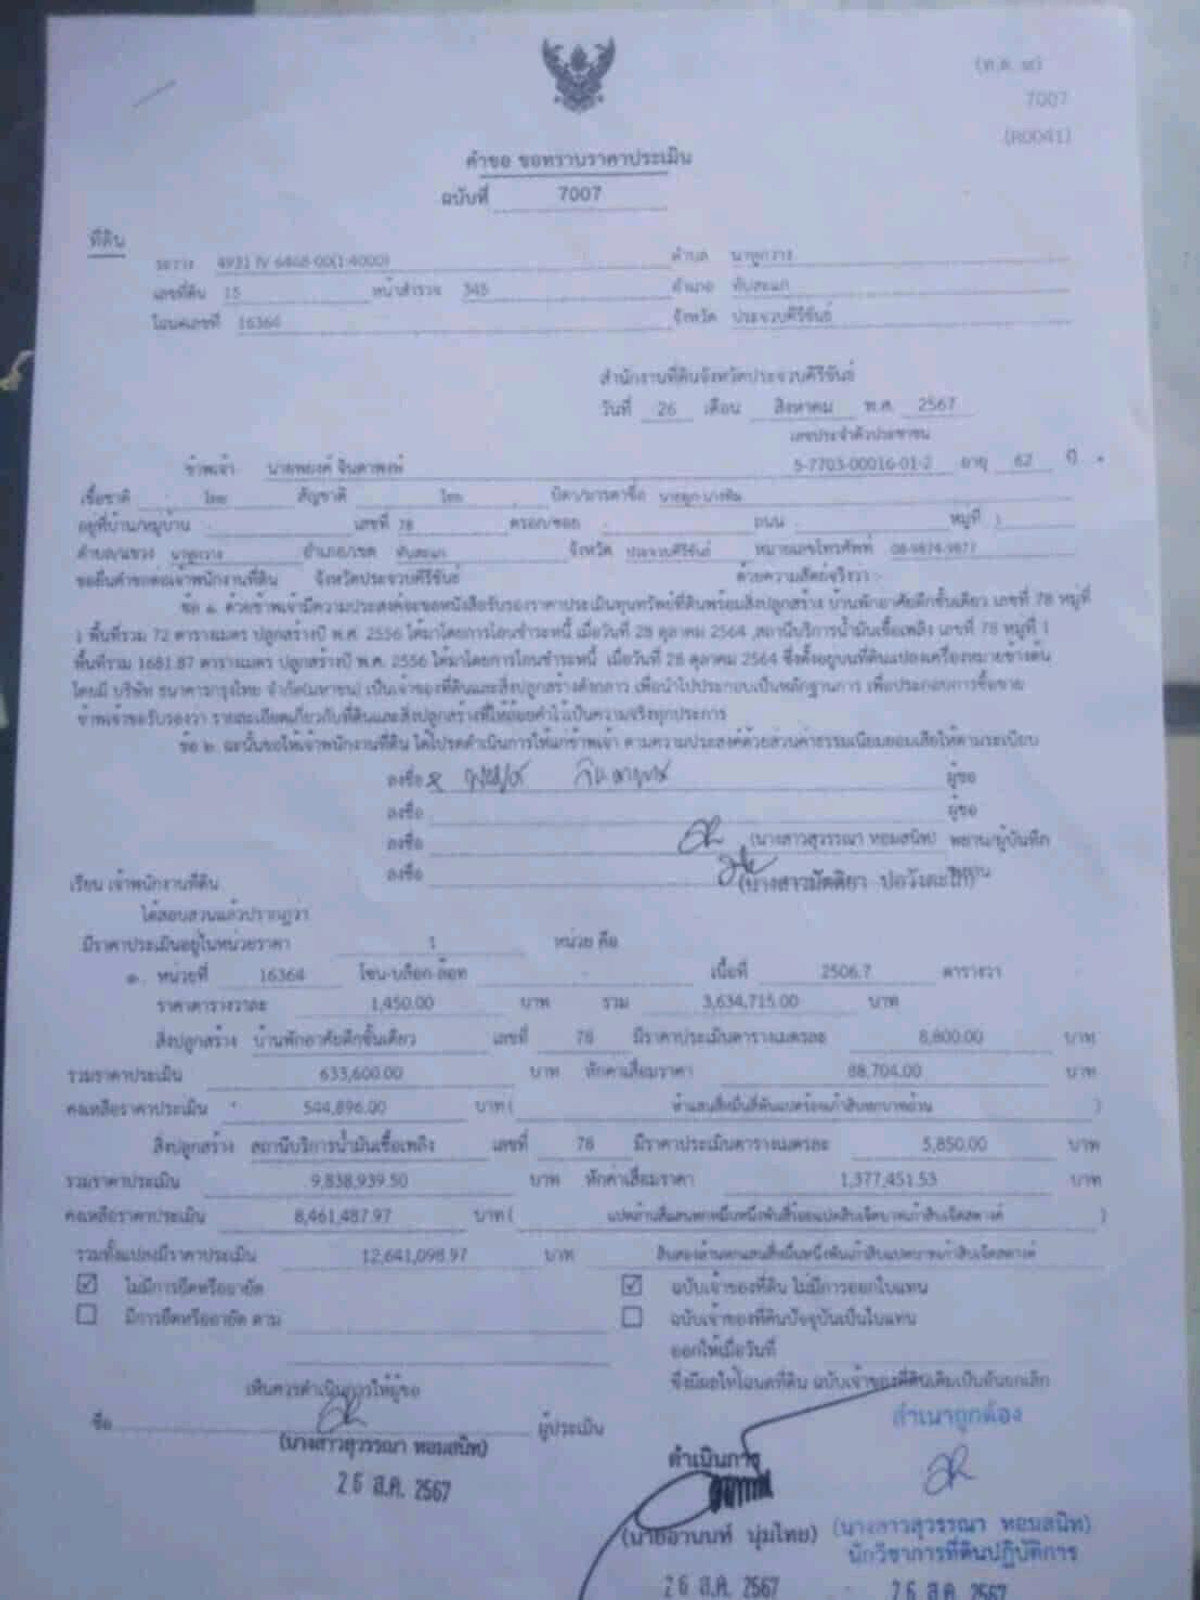 (ท.ด. ๙)
7007
(R0041)
คำขอ ขอทราบราคาประเมิน
ฉบับที่ 7007
ที่ดิน
ระวาง 4931 IV 6468-00(1:4000) ตำบล นาหูกวาง
เลขที่ดิน 15 หน้าสำรวจ 345 อำเภอ ทับสะแก
โฉนดเลขที่ 16364 จังหวัด ประจวบคีรีขันธ์
สำนักงานที่ดินจังหวัดประจวบคีรีขันธ์
วันที่ 26 เดือน สิงหาคม พ.ศ. 2567
เลขประจำตัวประชาชน
ข้าพเจ้า นายพยงค์ จินดาพงษ์ 5-7703-00016-01-2 อายุ 62 ปี
เชื้อชาติ ไทย สัญชาติ ไทย บิดา/มารดาชื่อ
อยู่ที่บ้าน/หมู่บ้าน เลขที่ 78 ตรอก/ซอย ถนน หมู่ที่ 1
ตำบล/แขวง นาหูกวาง อำเภอ/เขต ทับสะแก จังหวัด ประจวบคีรีขันธ์ หมายเลขโทรศัพท์ 08-9874-9877
ขอยื่นคำขอต่อเจ้าพนักงานที่ดิน จังหวัดประจวบคีรีขันธ์ ด้วยความสัตย์จริงว่า :-
ข้อ ๑. ด้วยข้าพเจ้ามีความประสงค์จะขอหนังสือรับรองราคาประเมินทุนทรัพย์ที่ดินพร้อมสิ่งปลูกสร้าง บ้านพักอาศัยตึกชั้นเดียว เลขที่ 78 หมู่ที่
1 พื้นที่รวม 72 ตารางเมตร ปลูกสร้างปี พ.ศ. 2556 ได้มาโดยการโอนชำระหนี้ เมื่อวันที่ 28 ตุลาคม 2564 ,สถานีบริการน้ำมันเชื้อเพลิง เลขที่ 78 หมู่ที่ 1
พื้นที่รวม 1681.87 ตารางเมตร ปลูกสร้างปี พ.ศ. 2556 ได้มาโดยการโอนชำระหนี้ เมื่อวันที่ 28 ตุลาคม 2564 ซึ่งตั้งอยู่บนที่ดินแปลงเครื่องหมายข้างต้น
โดยมี บริษัท ธนาคารกรุงไทย จำกัด(มหาชน) เป็นเจ้าของที่ดินและสิ่งปลูกสร้างดังกล่าว เพื่อนำไปประกอบเป็นหลักฐานการ เพื่อประกอบการซื้อขาย
ข้าพเจ้าขอรับรองว่า รายละเอียดเกี่ยวกับที่ดินและสิ่งปลูกสร้างที่ให้ถ้อยคำไว้เป็นความจริงทุกประการ
ข้อ ๒. ฉะนั้นขอให้เจ้าพนักงานที่ดิน ได้โปรดดำเนินการให้แก่ข้าพเจ้า ตามความประสงค์ด้วยส่วนค่าธรรมเนียมยอมเสียให้ตามระเบียบ
ลงชื่อ ผู้ขอ
ลงชื่อ ผู้ขอ
ลงชื่อ (นางสาวสุวรรณา หอมสนิท) พยาน/ผู้บันทึก
ลงชื่อ (นางสาวมัตติยา ปอวังตะโก)
เรียน เจ้าพนักงานที่ดิน
ได้สอบสวนแล้วปรากฏว่า
มีราคาประเมินอยู่ในหน่วยราคา 1 หน่วย คือ
๑. หน่วยที่ 16364 โซน-บล็อก-ล็อท - เนื้อที่ 2506.7 ตารางวา
ราคาตารางวาละ 1,450.00 บาท รวม 3,634,715.00 บาท
สิ่งปลูกสร้าง บ้านพักอาศัยตึกชั้นเดียว เลขที่ 78 มีราคาประเมินตารางเมตรละ 8,800.00 บาท
รวมราคาประเมิน 633,600.00 บาท หักค่าเสื่อมราคา 88,704.00 บาท
คงเหลือราคาประเมิน 544,896.00 บาท ( ห้าแสนสี่หมื่นสี่พันแปดร้อยเก้าสิบหกบาทถ้วน )
สิ่งปลูกสร้าง สถานีบริการน้ำมันเชื้อเพลิง เลขที่ 78 มีราคาประเมินตารางเมตรละ 5,850.00 บาท
รวมราคาประเมิน 9,838,939.50 บาท หักค่าเสื่อมราคา 1,377,451.53 บาท
คงเหลือราคาประเมิน 8,461,487.97 บาท ( แปดล้านสี่แสนหกหมื่นหนึ่งพันสี่ร้อยแปดสิบเจ็ดบาทเก้าสิบเจ็ดสตางค์ )
รวมทั้งแปลงมีราคาประเมิน 12,641,098.97 บาท สิบสองล้านหกแสนสี่หมื่นหนึ่งพันเก้าสิบแปดบาทเก้าสิบเจ็ดสตางค์
☑ ไม่มีการยึดหรืออายัด ☑ ฉบับเจ้าของที่ดิน ไม่มีการออกใบแทน
☐ มีการยึดหรืออายัด ตาม ☐ ฉบับเจ้าของที่ดินปัจจุบันเป็นใบแทน
ออกให้เมื่อวันที่
ซึ่งมีผลให้โฉนดที่ดิน ฉบับเจ้าของที่ดินเดิมเป็นอันยกเลิก
เห็นควรดำเนินการให้ผู้ขอ
ชื่อ ผู้ประเมิน
(นางสาวสุวรรณา หอมสนิท)
26 ส.ค. 2567
ดำเนินการ
(นายอานนท์ นุ่มไทย)
26 ส.ค. 2567
สำเนาถูกต้อง
(นางสาวสุวรรณา หอมสนิท)
นักวิชาการที่ดินปฏิบัติการ
26 ส.ค. 2567